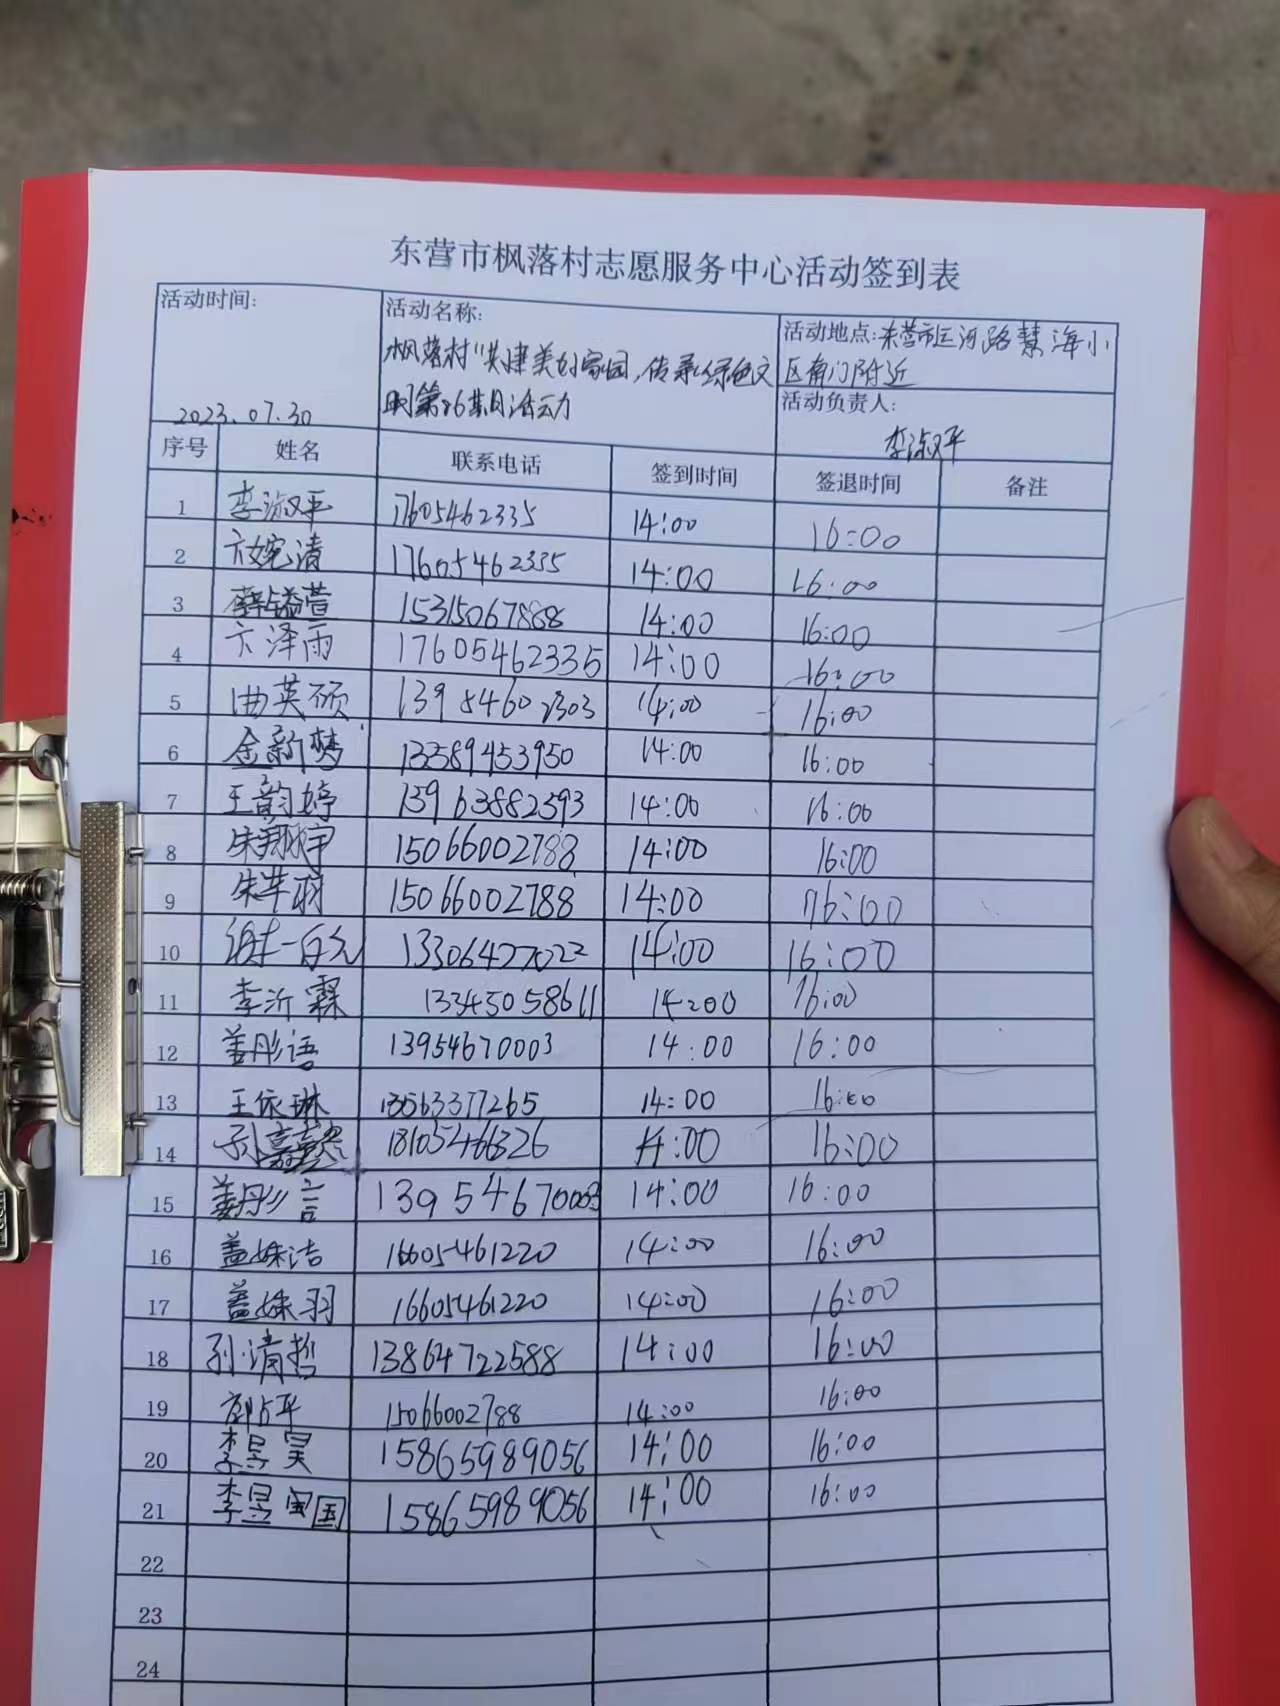 东营市枫落村志愿服务中心活动签到表
活动时间: 2023.07.30
活动名称: 枫落村"共建美好家园,传承绿色文
明第26期活动
活动地点:东营市运河路慧海小
区南门附近
活动负责人: 李淑平
序号 姓名 联系电话 签到时间 签退时间 备注
1 李淑平 17605462335 14:00 16:00
2 卞婉清 17605462335 14:00 16:00
3 薛镒萱 15315067888 14:00 16:00
4 卞泽雨 17605462335 14:00 16:00
5 曲英硕 13954602303 14:00 16:00
6 金新梦 13589453950 14:00 16:00
7 王韵婷 13963882593 14:00 16:00
8 朱翔宇 15066002788 14:00 16:00
9 朱芊羽 15066002788 14:00 16:00
10 谢一 13306427022 14:00 16:00
11 李沂霖 13345058611 14:00 16:00
12 姜彤语 13954670003 14:00 16:00
13 王依琳 13563377265 14:00 16:00
14 孙嘉懿 18105466326 14:00 16:00
15 姜彤言 13954670003 14:00 16:00
16 盖姝洁 16605461220 14:00 16:00
17 盖姝羽 16605461220 14:00 16:00
18 孙清哲 13864722588 14:00 16:00
19 郭占平 15066002788 14:00 16:00
20 李昱昊 15865989056 14:00 16:00
21 李昱国 15865989056 14:00 16:00
22
23
24